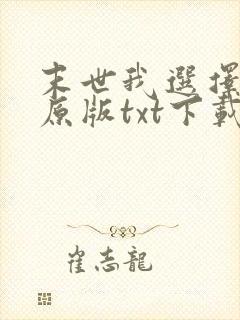 末世我選擇
原版txt下載
崔志龍